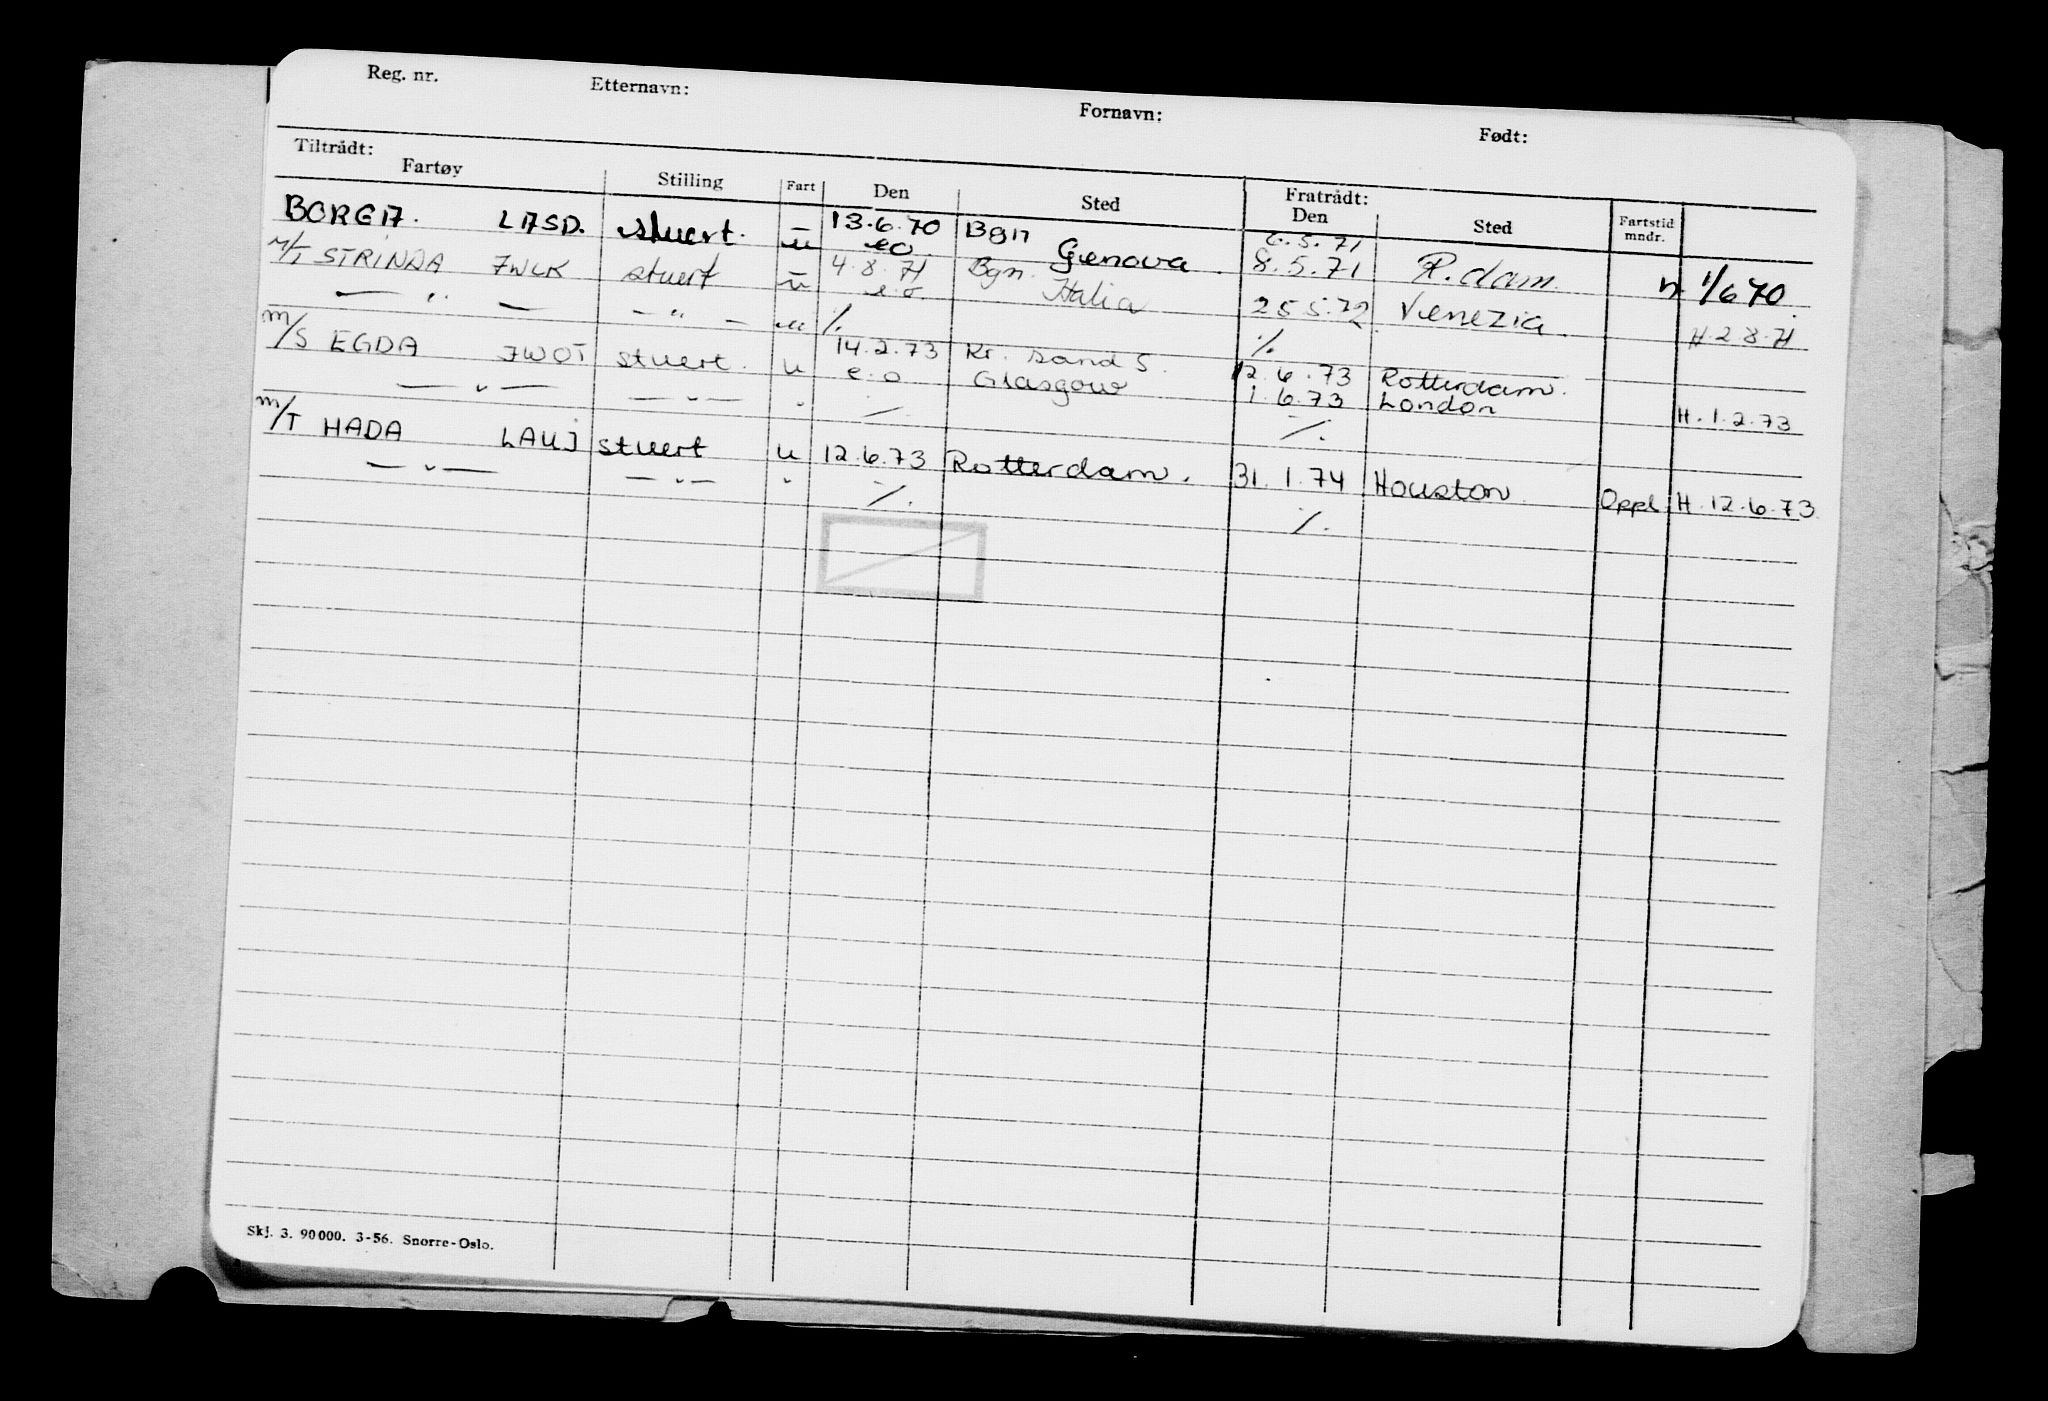 Reg. nr. Etternavn: Fornavn: Født:
Tiltrådt: Fratrådt:
Fartøy Stilling Fart Den Sted Den Sted Fartstid mndr.
BORGA. LASD. stuert. u 13.6.70 Bgn 6.5.71
e.o. Genova. 8.5.71 R.dam. H 1/6 70.
M/T STRINDA JWLK stuert u 4.8.71 Bgn.
e.o. Italia 25.5.72 Venezia. H.2.8.71
— " — — " — u ./. ./.
M/S EGDA JWOT stuert. u 14.2.73 Kr. sand S. 12.6.73 Rotterdam.
— " — — " — " e.o Glasgow 1.6.73 London H.1.2.73
./. ./.
M/T HADA LAUJ stuert u 12.6.73 Rotterdam. 31.1.74 Houston. Oppl H.12.6.73
— " — — " — " ./. ./.
Skj. 3. 90000. 3-56. Snorre-Oslo.